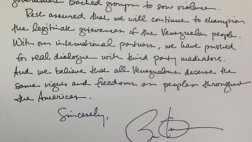 backed groups to sow violence.
Rest assured that we will continue to champion
the legitimate grievances of the Venezuelan people.
With our international partners, we have pushed
for real dialogue with third party mediators.
And we believe that all Venezuelans deserve the
same rights and freedoms as people throughout
the Americas.
Sincerely,